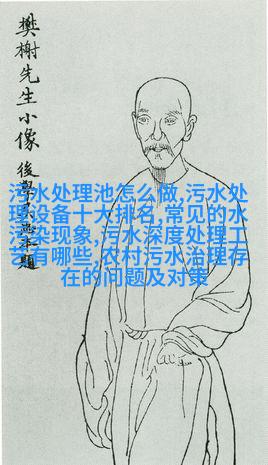 樊榭先生小像
後學題
污水处理池怎么做,污水处
理设备十大排名,常见的水
污染现象,污水深度处理工
艺有哪些,农村污水治理存
在的问题及对策